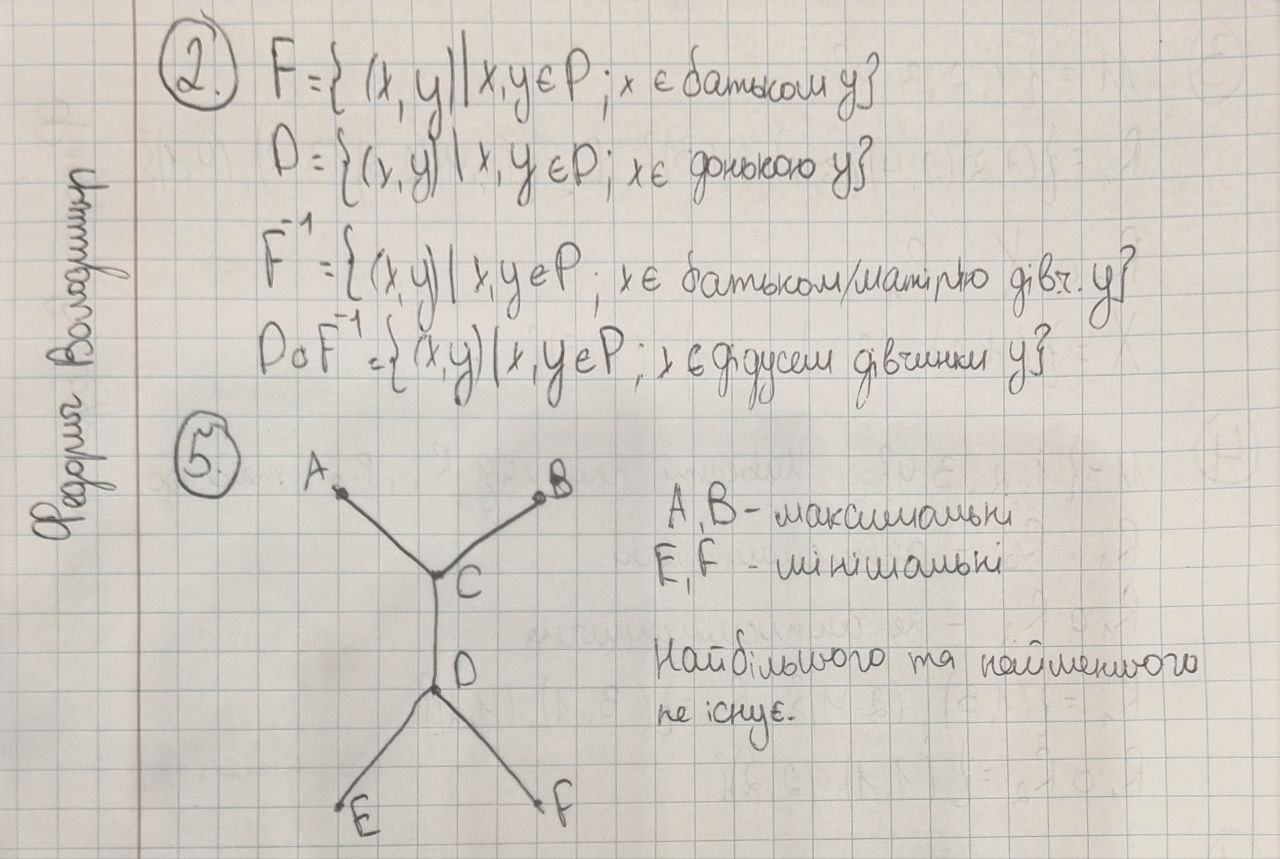 Федорня Володимир
2. F = { (x, y) | x, y є P ; x є батьком y}
D = {(x, y) | x, y є P ; x є донькою y}
F⁻¹ = { (x, y) | x, y є P ; x є батьком/матірю дівч. y}
D ∘ F⁻¹ = { (x, y) | x, y є P ; x є дідусем дівчинки y}
5.
A
B
A, B - максимальні
E, F - мінімальні
C
D
Найбільшого та найменшого
не існує.
E
F